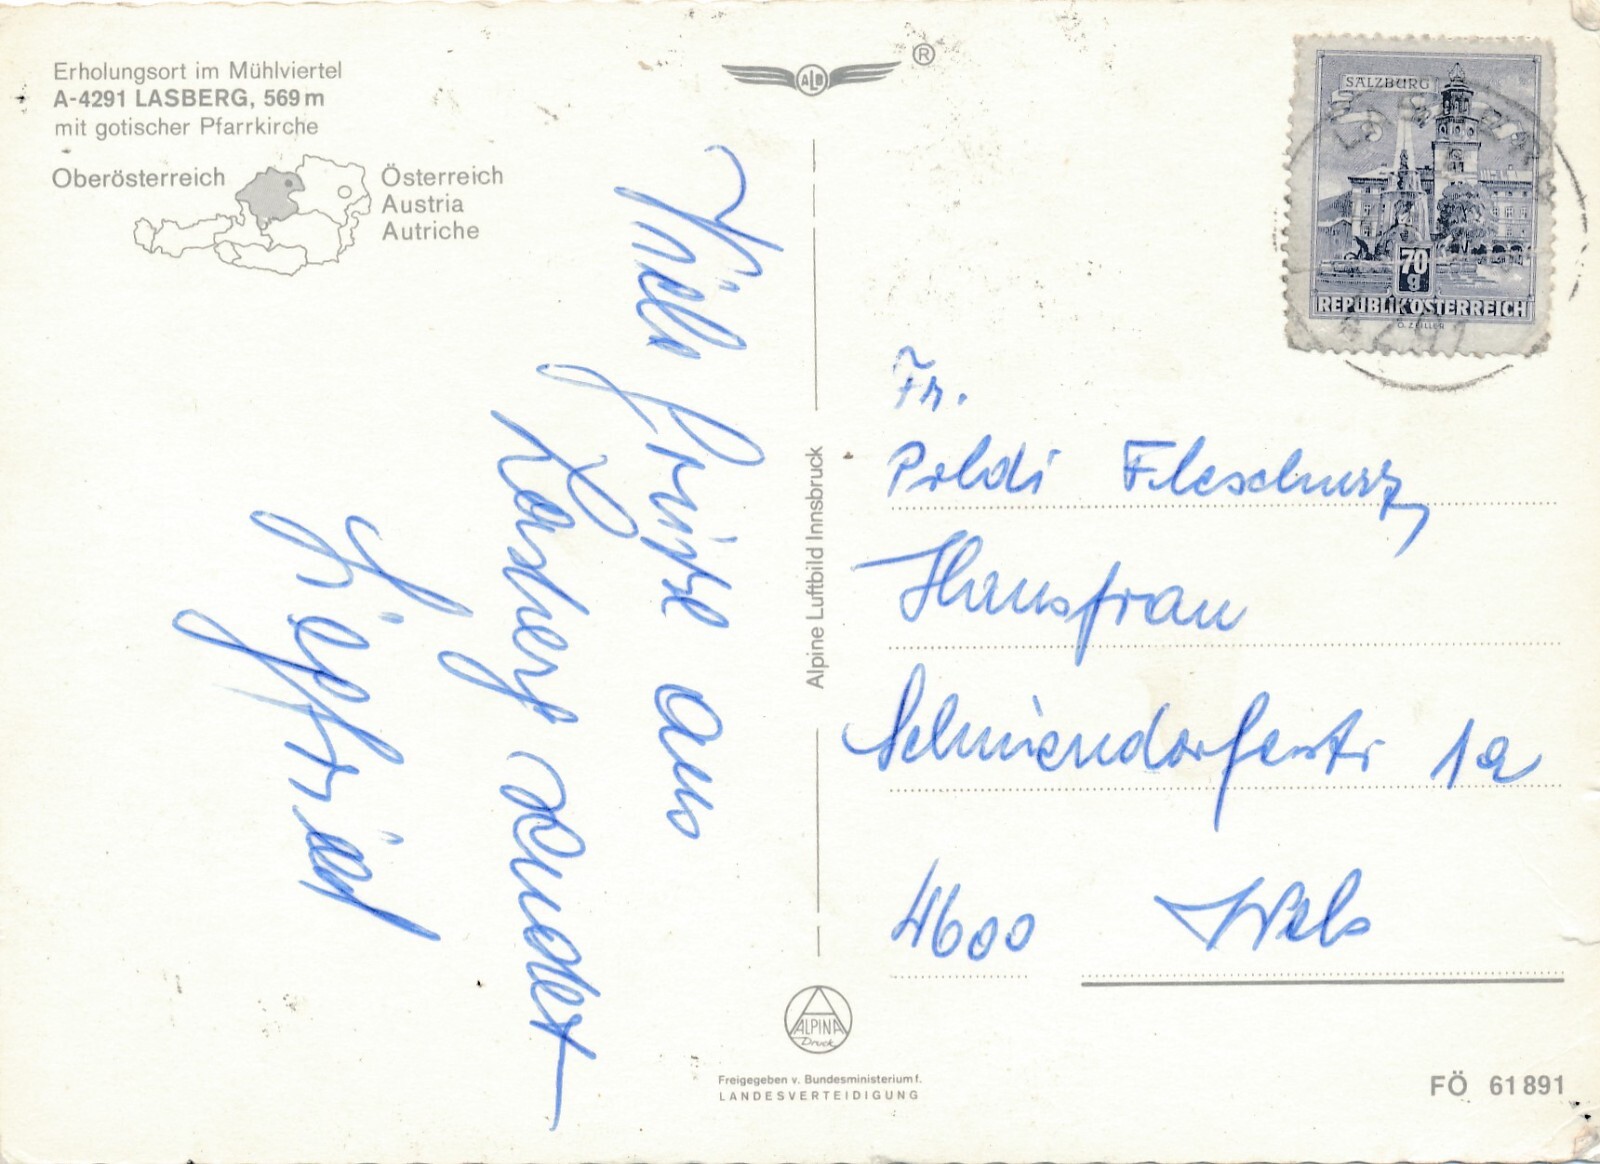 Erholungsort im Mühlviertel
A-4291 LASBERG, 569 m
mit gotischer Pfarrkirche
Oberösterreich
Österreich
Austria
Autriche
ALB
®
Viele Grüße aus
Lasberg sendet
Siegfried
Alpine Luftbild Innsbruck
SALZBURG
70
g
REPUBLIK ÖSTERREICH
O. ZEILLER
LASBERG
4291
Fr.
Poldi
Hausfrau
1a
4600 Wels
ALPINA
Druck
Freigegeben v. Bundesministerium f.
LANDESVERTEIDIGUNG
FÖ 61 891